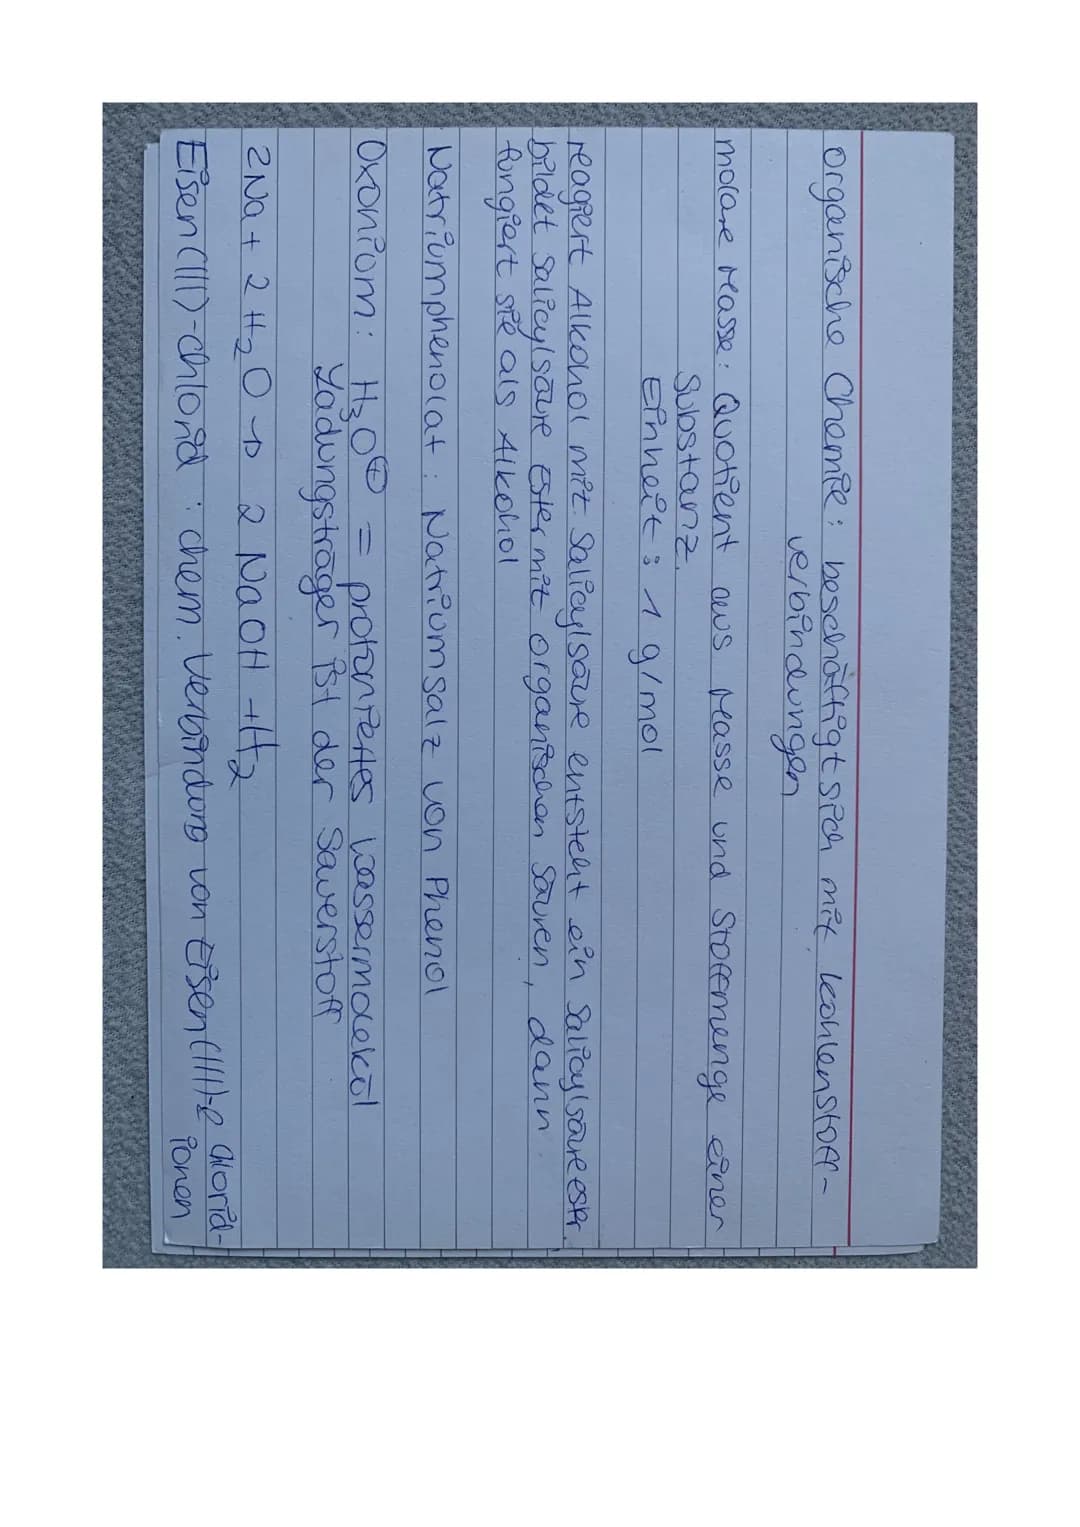 organische Chemie: beschäftigt sich mit kohlenstoff-
verbindungen
molare Masse: Quotient aus Masse und Stoffmenge einer
Substanz.
Einheit: 1 g/mol
reagiert Alkohol mit Salicylsäure entsteht ein Salicylsäureester.
bildet Salicylsäure Ester mit organischen Säuren, dann
fungiert sie als Alkohol
Natriumphenolat: Natriumsalz von Phenol
Oxonium: H₃O⊕ = protoniertes Wassermolekül
Ladungsträger ist der Sauerstoff
2Na + 2 H₂O → 2 NaOH + H₂
Eisen(III)-chlorid: chem. Verbindung von Eisen(III)-& Chlorid-
ionen